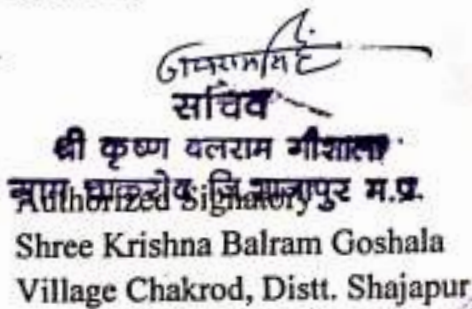 सचिव
श्री कृष्ण बलराम गौशाला
जि. शाजापुर म.प्र.
Authorized Signatory
Shree Krishna Balram Goshala
Village Chakrod, Distt. Shajapur